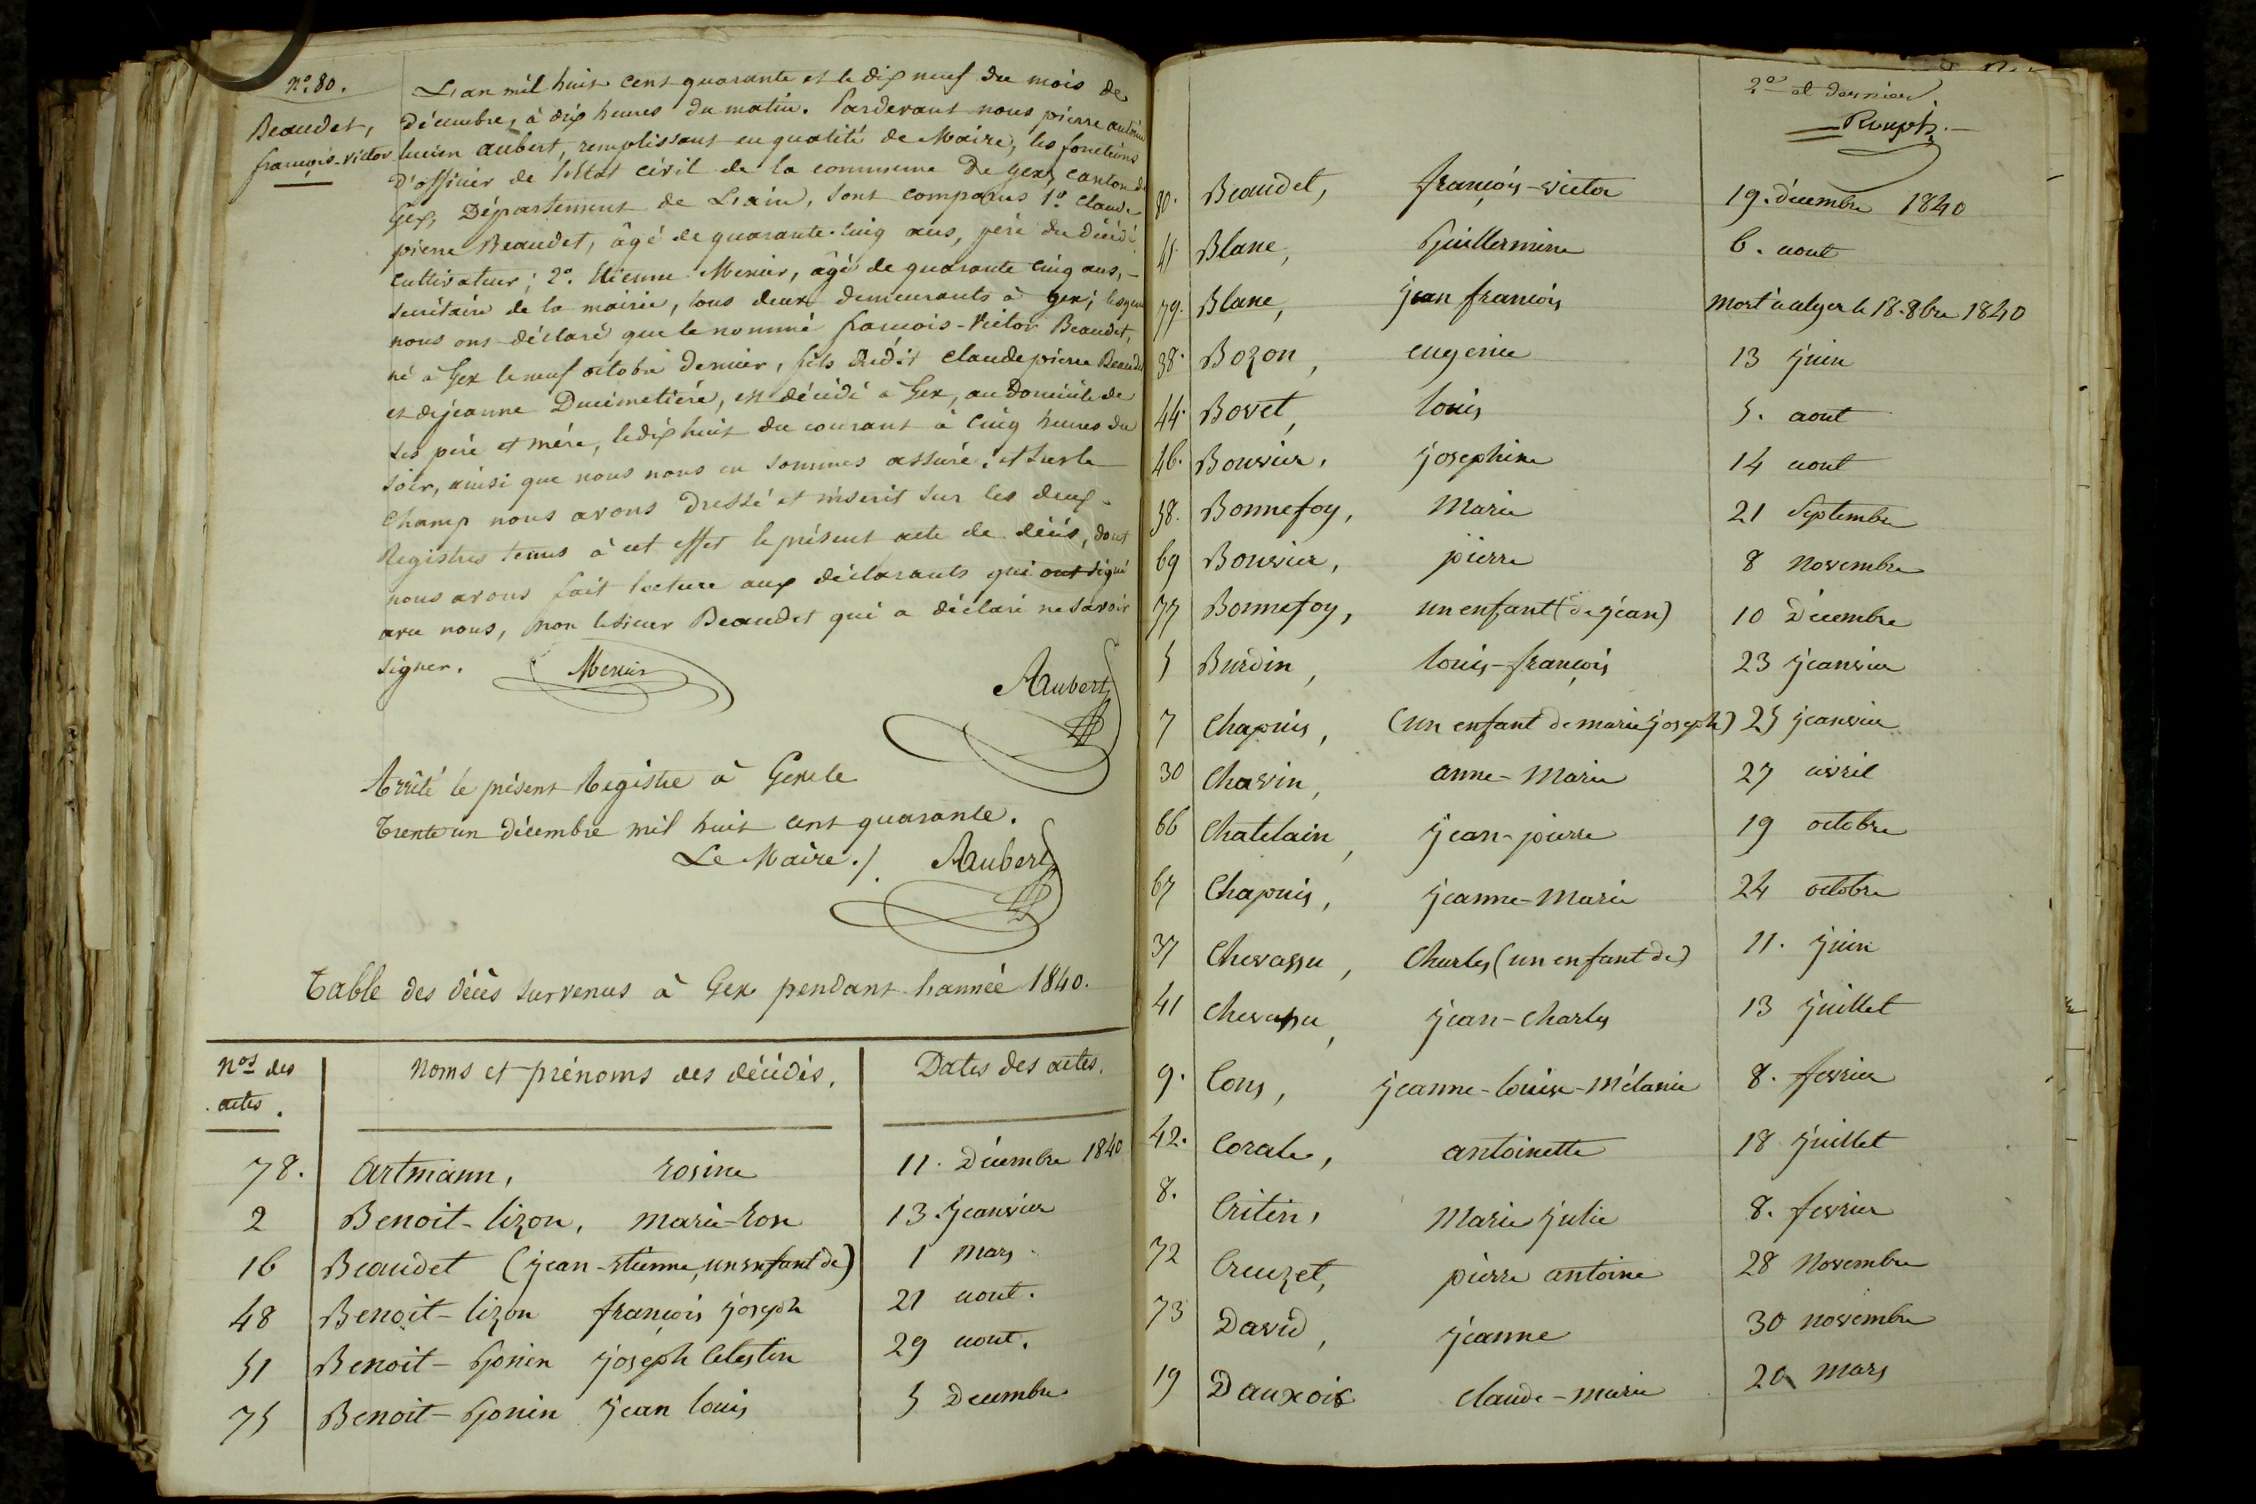 N.o 80.
Beaudet,
françois-victor
L'an mil huit cent quarante et le dix neuf du mois de
décembre, à dix heures du matin. Pardevant nous pierre antoine
lucien aubert, remplissant en qualité de Maire, les fonctions
D'officier de l'état civil de la commune De Gex, canton de
Gex, Département de L'ain, sont comparus 1.o Claude
pierre Beaudet, âgé de quarante-cinq ans, père du décédé
cultivateur; 2.o Etienne Menier, âgé de quarante cinq ans,-
secrétaire de la mairie, tous deux demeurants à Gex; lesquels
nous ont déclaré que le nommé françois-Victor Beaudet,
né à Gex le neuf octobre dernier, fils dudit Claude pierre Beaudet
et de jeanne Ducimetière, est décédé à Gex, au Domicile de
ses père et mère, le dix huit du courant à cinq heures du
soir, ainsi que nous nous en sommes assuré. et sur le
champ nous avons dressé et inscrit sur les deux-
Registres tenus à cet effet le présent acte de décès, dont
nous avons fait lecture aux déclarants qui ont signé
avec nous, non le sieur Beaudet qui a déclaré ne savoir
signer. Menier
Aubert
Arrêté le présent Registre à Gex le
Trente un décembre mil huit cent quarante.
Le Maire./. Aubert
Table des décès survenus à Gex pendant l'année 1840.
Nos des actes. Noms et prénoms des décédés. Dates des actes.
78. Artmann, rosine 11. Décembre 1840
2 Benoit-lizon, marie-rose 13. Jeanvier
16 Beaudet (jean-etienne, un enfant de) 1 mars
48 Benoit-lizon françois joseph 21 aout.
51 Benoit-Gonin joseph Celestin 29 aout.
75 Benoit-Gonin jean louis 5 Decembre
2.e et dernier
Rouph.
80. Beaudet, françois-victor 19. décembre 1840
45 Blanc, Guillermine 6. aout
79. Blanc, jean françois mort à alger le 18. 8bre 1840
38. Bozon, eugenie 13 juin
44. Bovet, louis 5. aout
46. Bouvier, josephine 14 aout
58. Bonnefoy, Marie 21 Septembre
69 Bouvier, pierre 8 Novembre
77 Bonnefoy, un enfant (de jean) 10 Décembre
5 Burdin, louis-françois 23 jeanvier
7 Chapuis, (un enfant de marie joseph) 25 jeanvier
30 Chavin, anne-Marie 27 avril
66 Chatelain, jean-pierre 19 octobre
67 Chapuis, jeanne-Marie 24 octobre
37 Chevassu, Charles (un enfant de) 11. juin
41 Chevassu, jean-Charles 13 juillet
9. Cons, jeanne-louise-mélanie 8. fevrier
42. Corale, antoinette 18 juillet
8. Critin, Marie julie 8. fevrier
72 Creuzet, pierre antoine 28 Novembre
73 David, jeanne 30 novembre
19 Dauxois claude-marie 20 mars